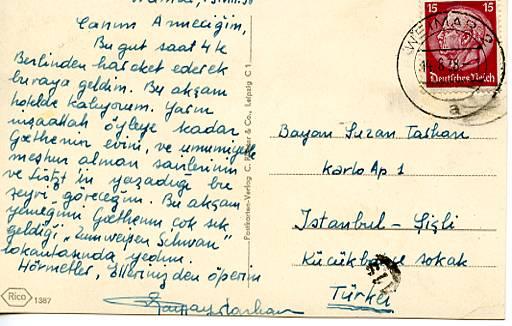 Canım Anneciğim,
Bu gut saat 4 k
Berlinden hareket ederek
buraya geldim. Bu akşam
hotelde kalıyorum. Yarın
inşaallah öyleye kadar
Goethenin evini, ve umumiyetle
meşhur alman şairlerinin
ve Liszt'in yaşadığı bu
göreceğim. Bu akşam
yemeğimi Goethenin çok sık
geldiği, „Zum weissen Schwan"
lokantasında yedim.
Hörmetler, Ellerinizden öperim
Rico 1387
Postkarten-Verlag C. & Co., Leipzig C 1
15 15
Deutsches Reich
WEIMAR
a
Bayan Suzan Tarhan
Karlo Ap 1
Istanbul - Şişli
Küçükbahçe sokak
Türkei